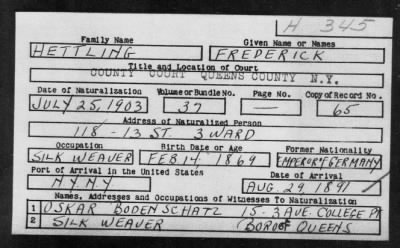 H 345
Family Name Given Name or Names
HETTLING FREDERICK
Title and Location of Court
COUNTY COURT QUEENS COUNTY N.Y.
Date of Naturalization Volume or Bundle No. Page No. Copy of Record No.
JULY 25, 1903 37 — 65
Address of Naturalized Person
118 - 13 ST. 3 WARD
Occupation Birth Date or Age Former Nationality
SILK WEAVER FEB 14 1869 EMPEROR GERMANY
Port of Arrival in the United States Date of Arrival
N.Y. N.Y AUG. 29, 1891
Names, Addresses and Occupations of Witnesses To Naturalization
1 OSKAR BODENSCHATZ 15-3 AVE. COLLEGE PT
2 SILK WEAVER BORO OF QUEENS